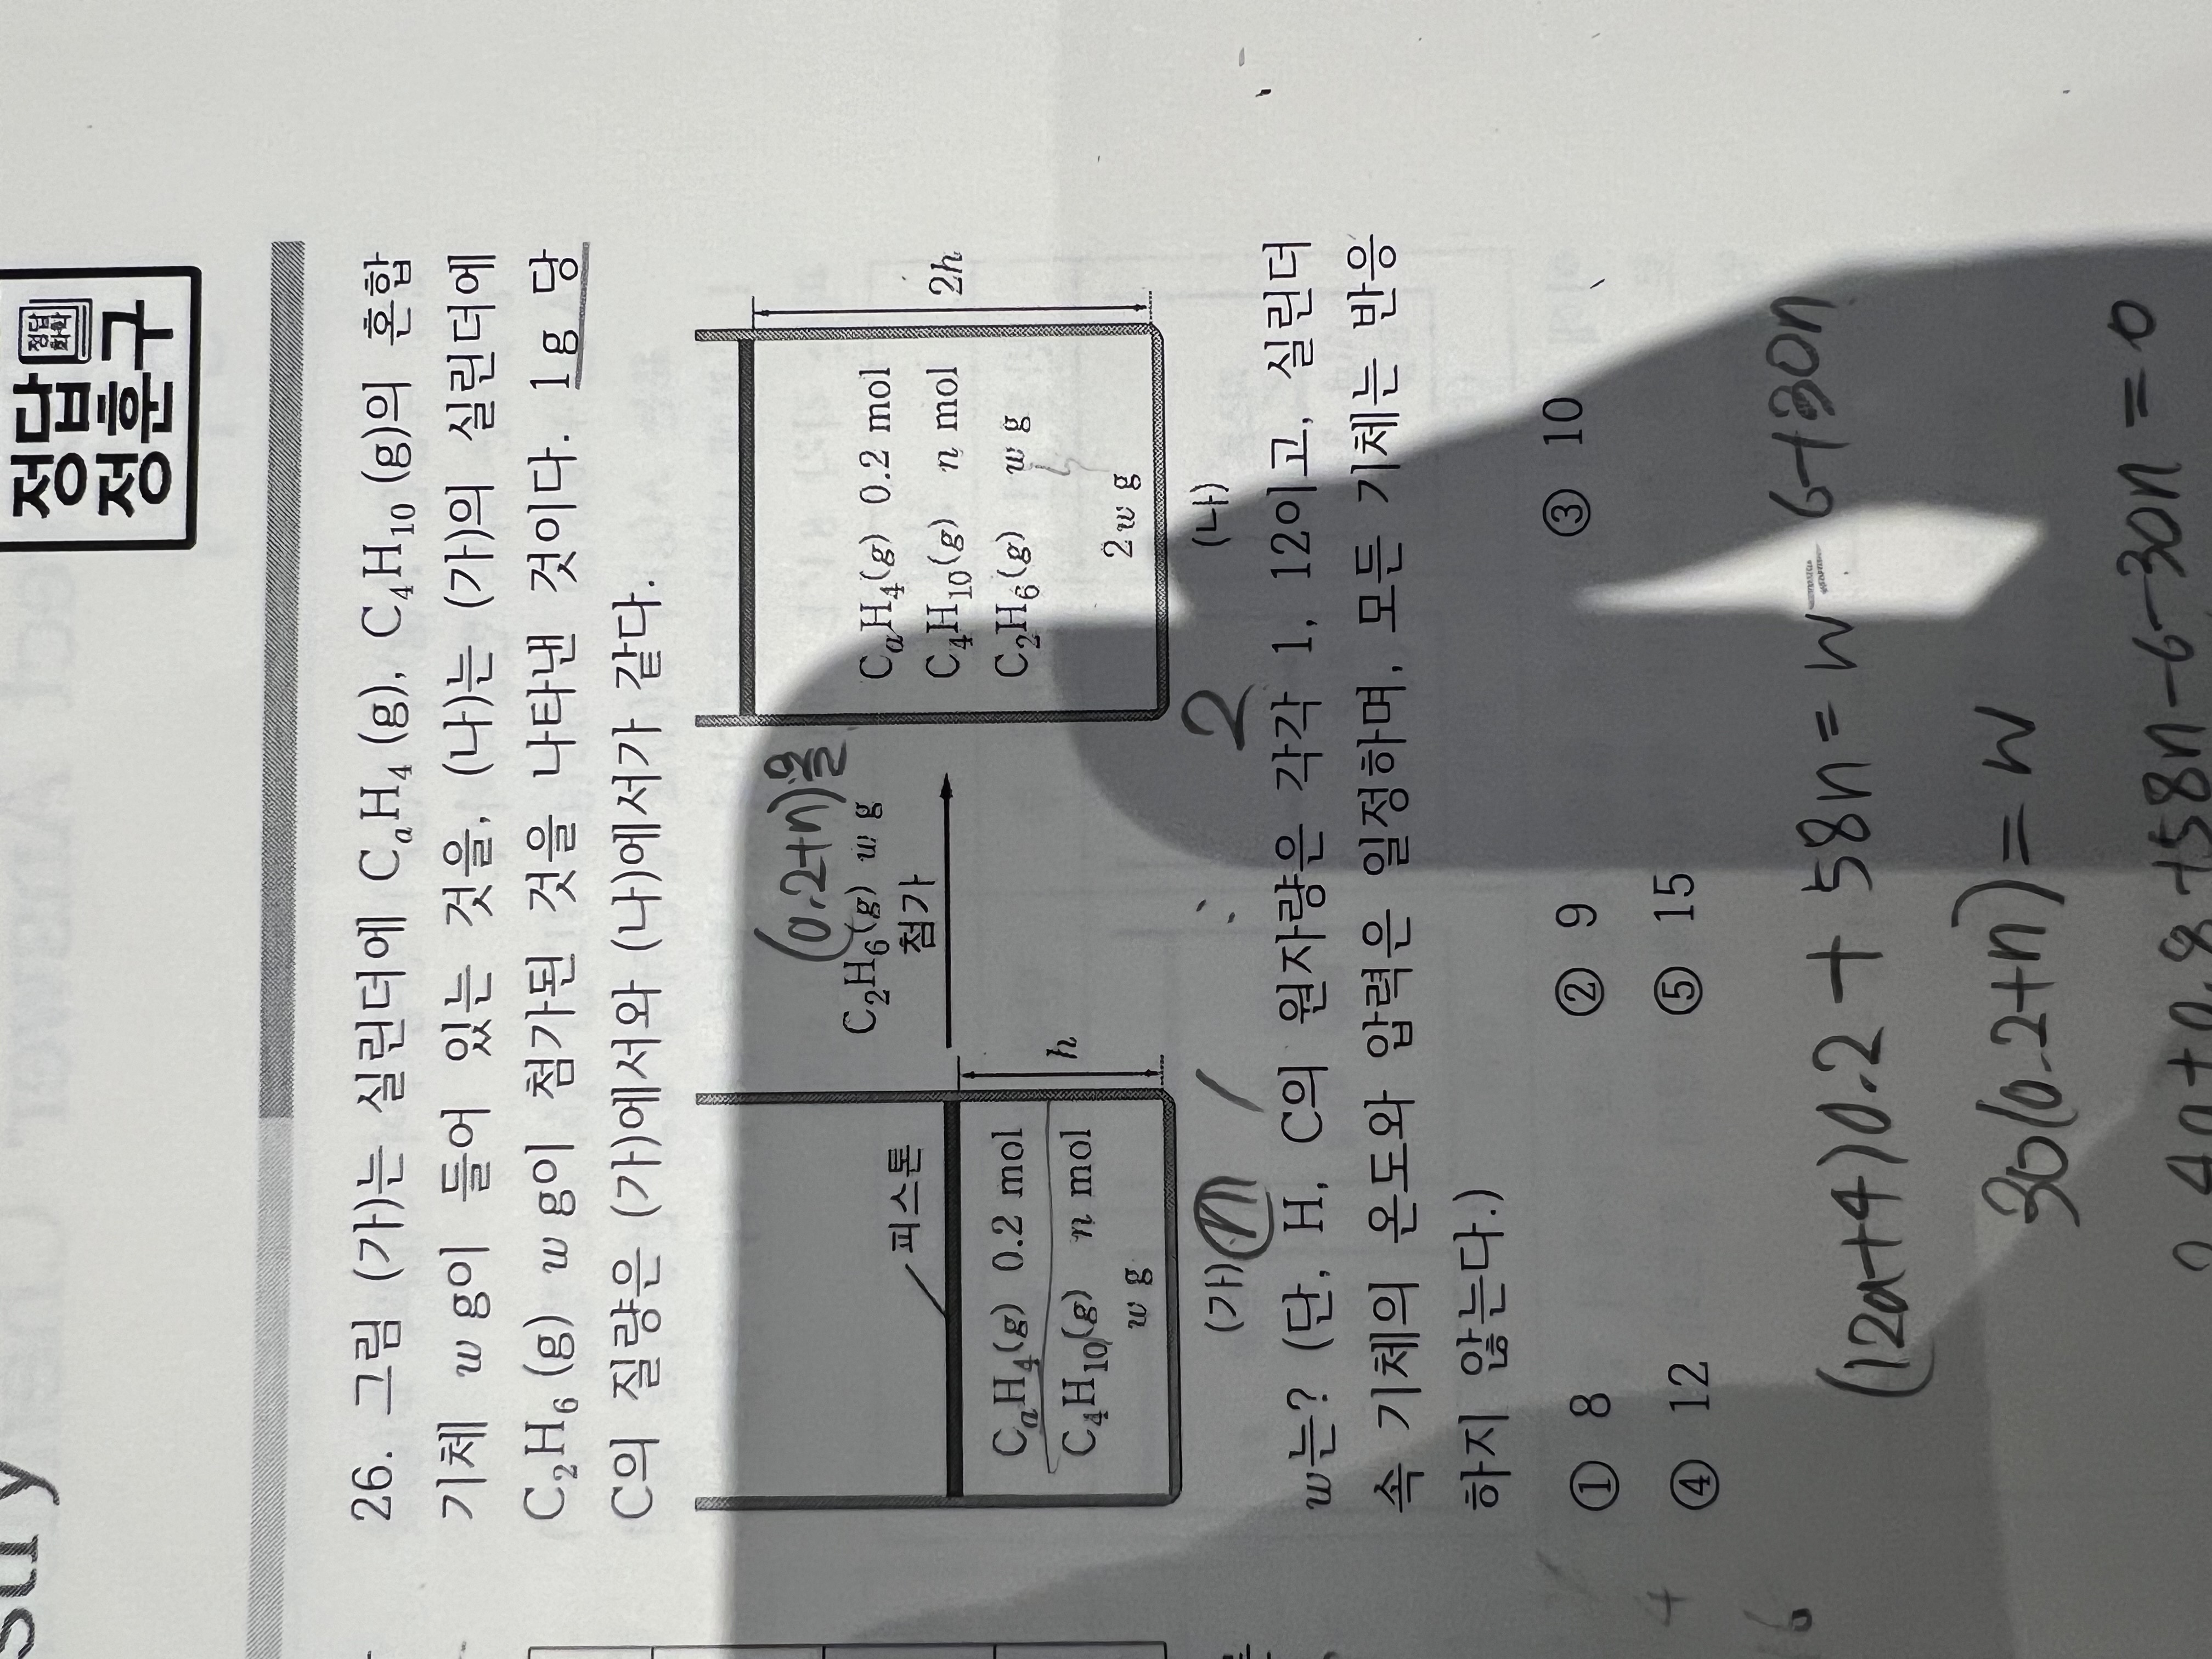 정답
정훈구
정답
화학
26. 그림 (가)는 실린더에 CₐH₄ (g), C₄H₁₀ (g)의 혼합
기체 w g이 들어 있는 것을, (나)는 (가)의 실린더에
C₂H₆ (g) w g이 첨가된 것을 나타낸 것이다. 1g 당
C의 질량은 (가)에서와 (나)에서가 같다.
피스톤
CₐH₄(g) 0.2 mol
C₄H₁₀(g) n mol
w g
h
(가)
n
1
(0.2+n)몰
C₂H₆(g) w g
첨가
CₐH₄(g) 0.2 mol
C₄H₁₀(g) n mol
C₂H₆(g) w g
2w g
2h
(나)
2
w는? (단, H, C의 원자량은 각각 1, 12이고, 실린더
속 기체의 온도와 압력은 일정하며, 모든 기체는 반응
하지 않는다.)
① 8 ② 9 ③ 10
④ 12 ⑤ 15
(12a+4)0.2 + 58n = w 6+30n
30(0.2+n) = w
+0.8+58n-6-30n = 0